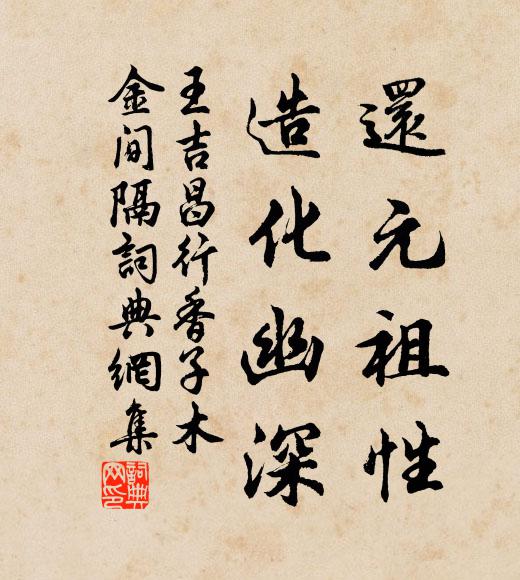 還元祖性
造化幽深
王吉昌行香子木
金間隔詞典網集
詞典網印